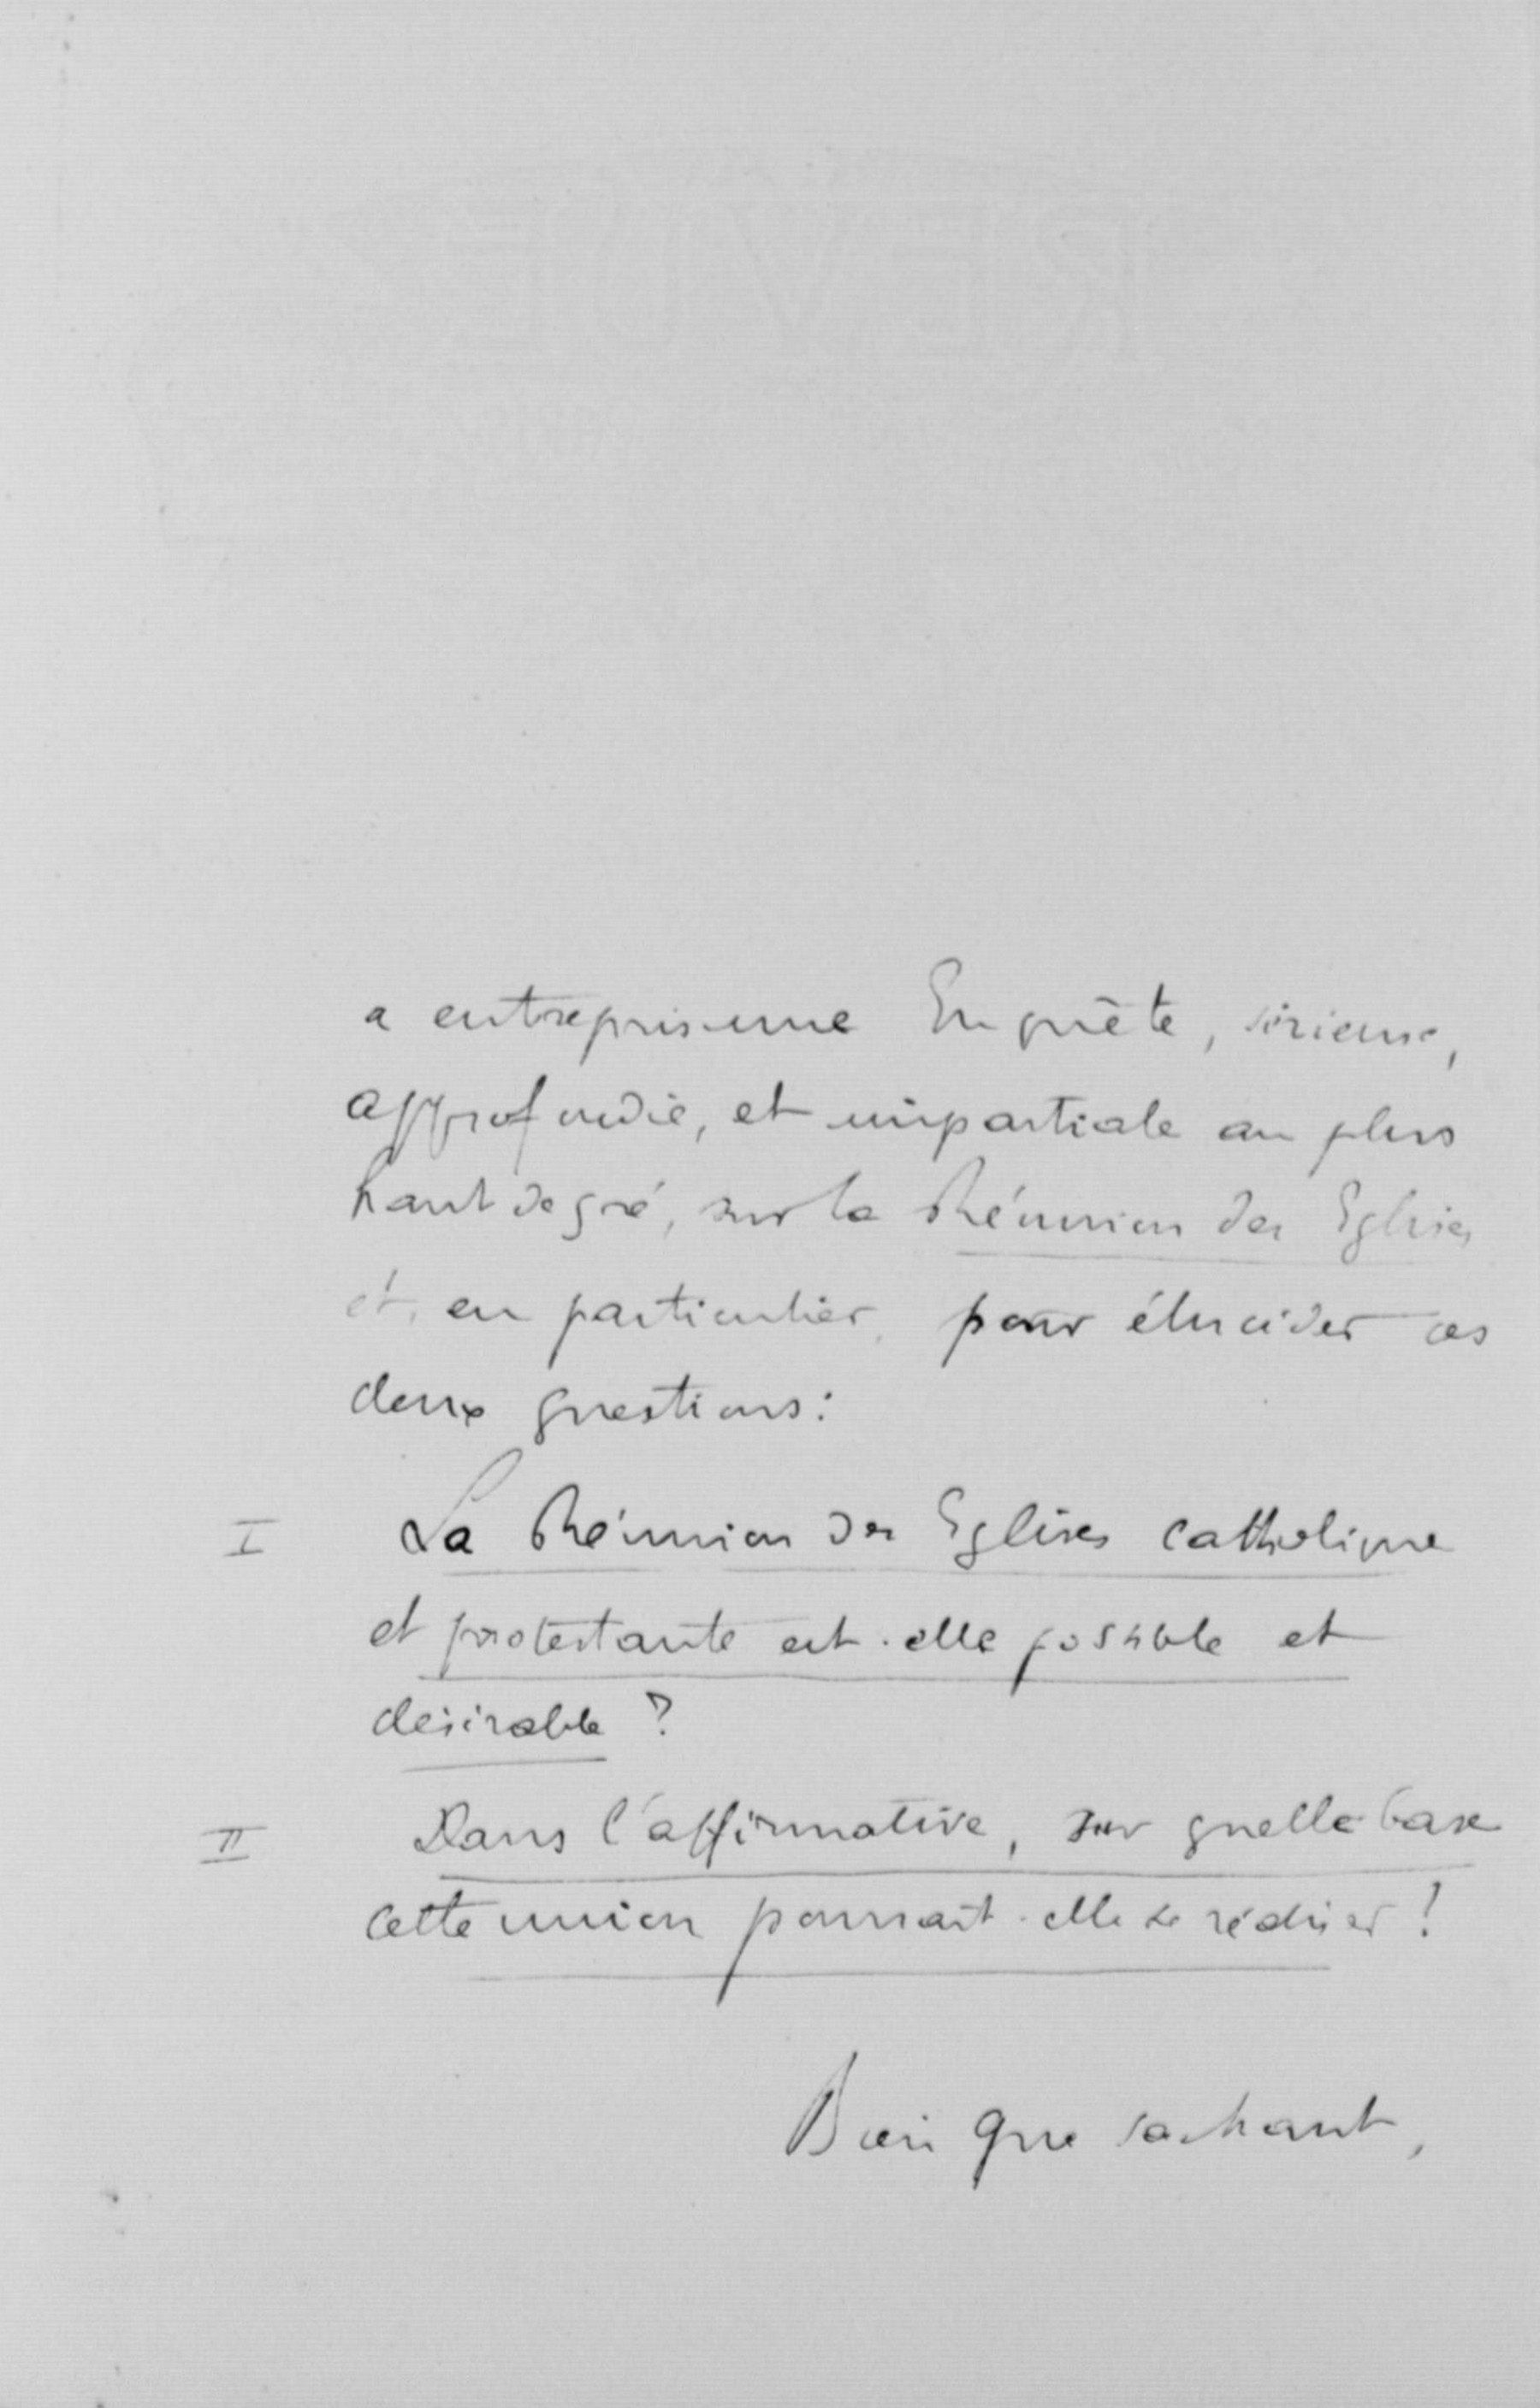 a entrepris une Enquête, sérieuse,
approfondie, et impartiale au plus
haut degré, sur la Réunion des Eglises
et, en particulier, pour élucider ces
deux questions:
I La Réunion des Eglises catholique
et protestante est-elle possible et
désirable ?
II Dans l'affirmative, sur quelle base
cette union pourrait-elle se réaliser ?
Bien que sachant,